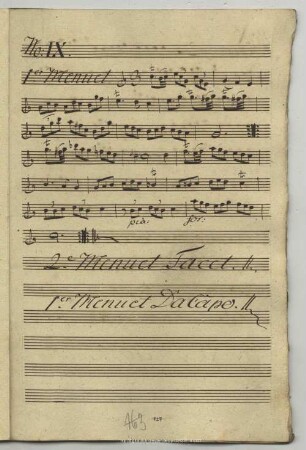 No: IX.
1.er Menuet
pia: for:
2.e Menuet Tacet.
1.er Menuet DaCapo.